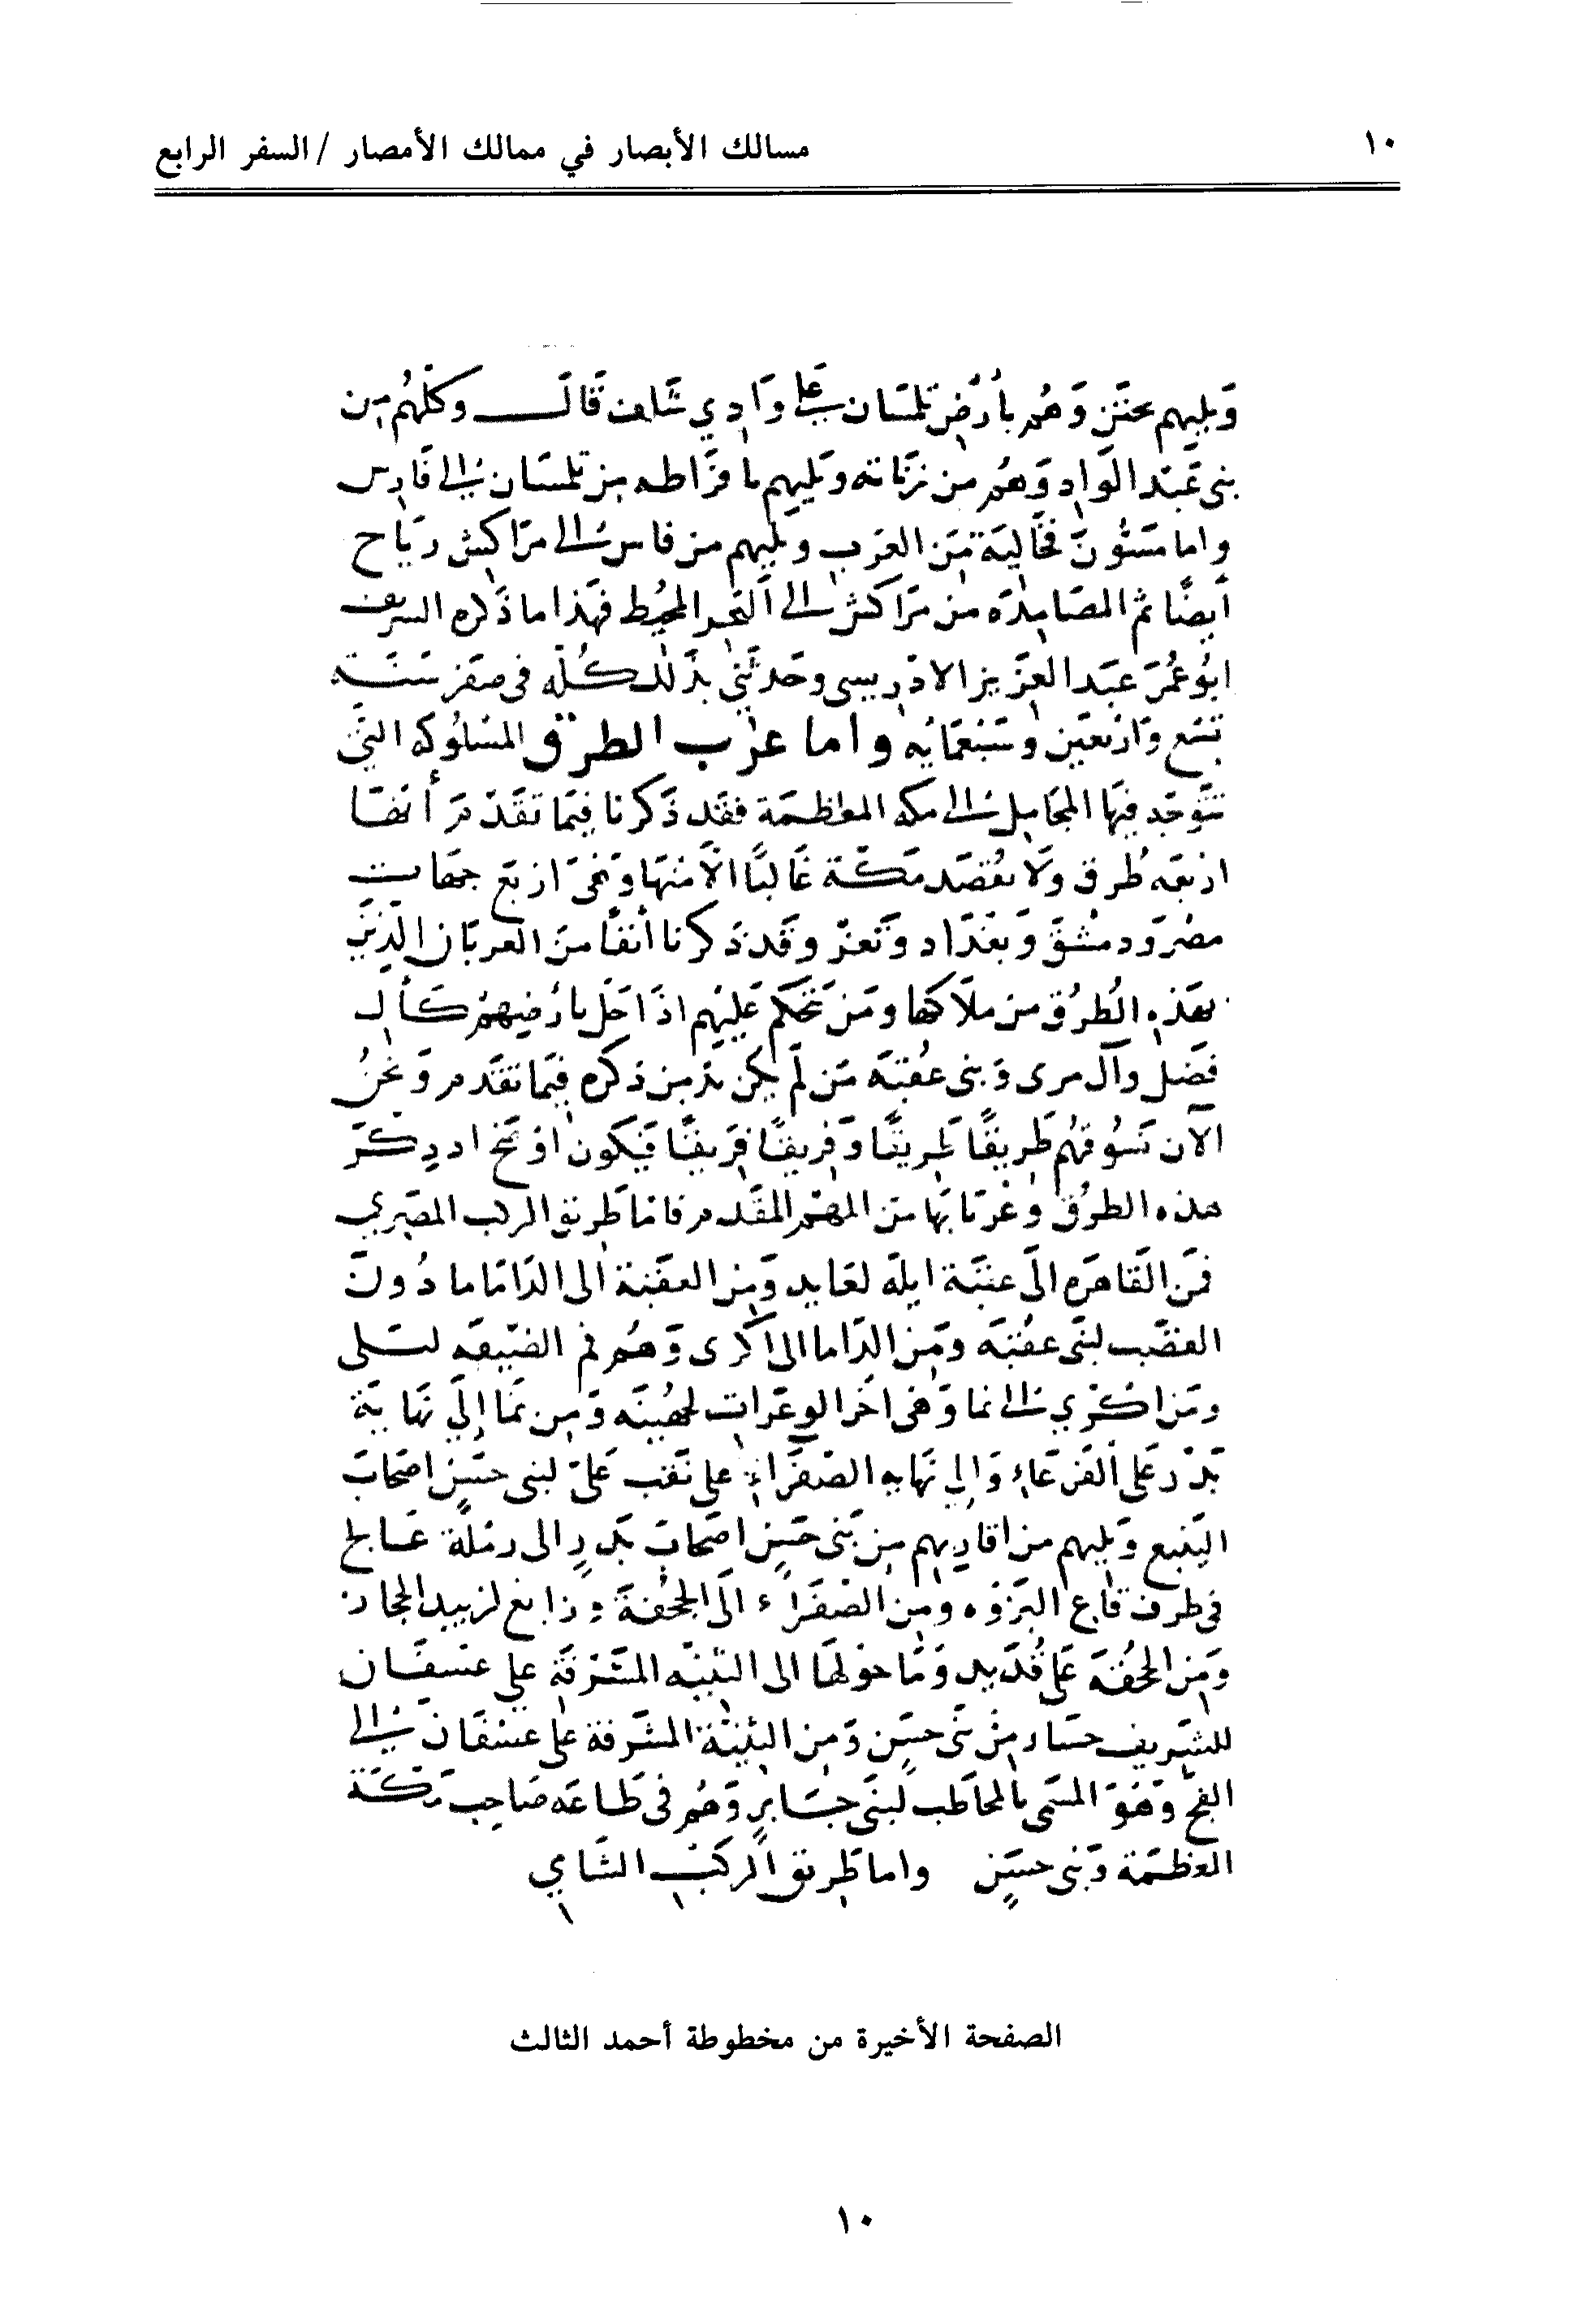 ١٠
مسالك الأبصار في ممالك الأمصار / السفر الرابع
وَيليهم وَهُم بأرض تلمسَان عَلى وَادِي شَلف قَالَ وكلّهُم مِن
بني عَبْد الوَادِ وَهُم من زنَاته وَيَليهم من تلمسَان إلى فَارس
واما فخَالِيَة مِن العَرَب ويليهم من فاس الى مَراكش ريَاح
أيضًا ثم المصَامِدَه من مَرَاكش الى البَحر المحيُط فهَذا ما ذكره الشريف
ابُو عُمَر عَبَد العزَيز الادرِيسى وحَدثَني بذَلك كُلّه فى صَفَر سَنَة
تسَع وَاربَعَين وسَبْعمَايه واما عرَب الطرق المسْلوُكه التي
تتَوجّه فيهَا المحَامِل الى مكه المعظمَة فقَد ذَكرنا فِيمَا تقَدّمَ أنفَا
اربَعَه طُرق ولَا يقُصَد مَكّة غَالبًا الّا منهَا وَهَى ارَبَع جهَات
مصْر وَدمشْق وَبَغْدَاد وَتَعز وقَد ذكرنا أنفًا من العربَان الذَين
بهَذِه الطُرُق من ملَاكها ومَن تحَكم عَليْهم اذَا حَل بارضِيهمْ كَأل
فضَل وآل مرى وَبنى عُقبَه مَن لَم يكن بدّ مِن ذكره فِيمَا تقَدم وَنحنُ
الآن نَسُوقهُم طَريقًا طَريقًا وَفريقًا فرَيقًا فيَكون ذِكرَ
هذه الطرُق وعُربَانهَا مَن المهَم المقَدم فامَا طَريق الركب المصَرِي
فمَن القَاهرَه الىَ عقبَة ايلَه لعَايد وَمِن العقَبَة الى الدَامَا ما دُونَ
لبنَى عقُبَه ومَن الدَاما الى اكرى وَهُم فى الضَيقه لبَلى
ومَن اكرْي الى نما وَهَى اخَر الوعَرات لجهُينَه وَمِن نمَا إلي نهَايَة
بَدْر عَلى الفَرعَاءِ وَإلي نهَايه الصَفرَاءِ على نَقب عَليّ لبنى حسَنٍ اصحَاب
اليَنبع وَيليهم من اقاربِهم مِن بَنى حسَنٍ اصحَاب بَدرٍ الى رملَة عَالج
فى طرف قاع البَزوَه ومِن الصَفَراء الىَ الجحُفَة ورَابغ لزبيد الحجاز
وَمِن الجحُفَه عَلى قُدَيد وَمَا حَولهَا الى الثنيّه المشَرفَة على عسفَان
للشَريف من بَنى حسَنٍ وَمِن الثنيَّة المشَرفة على عسَفان الى
الفجّ وَهَوَ المسَمى بالمحَاطب لبنَى جَابرٍ وَهُم فى طَاعَه صَاحب مَكّة
المعَظمَة وَبَنى حسَنٍ واما طَريق الركبْ الشَامي
الصفحة الأخيرة من مخطوطة أحمد الثالث
١٠